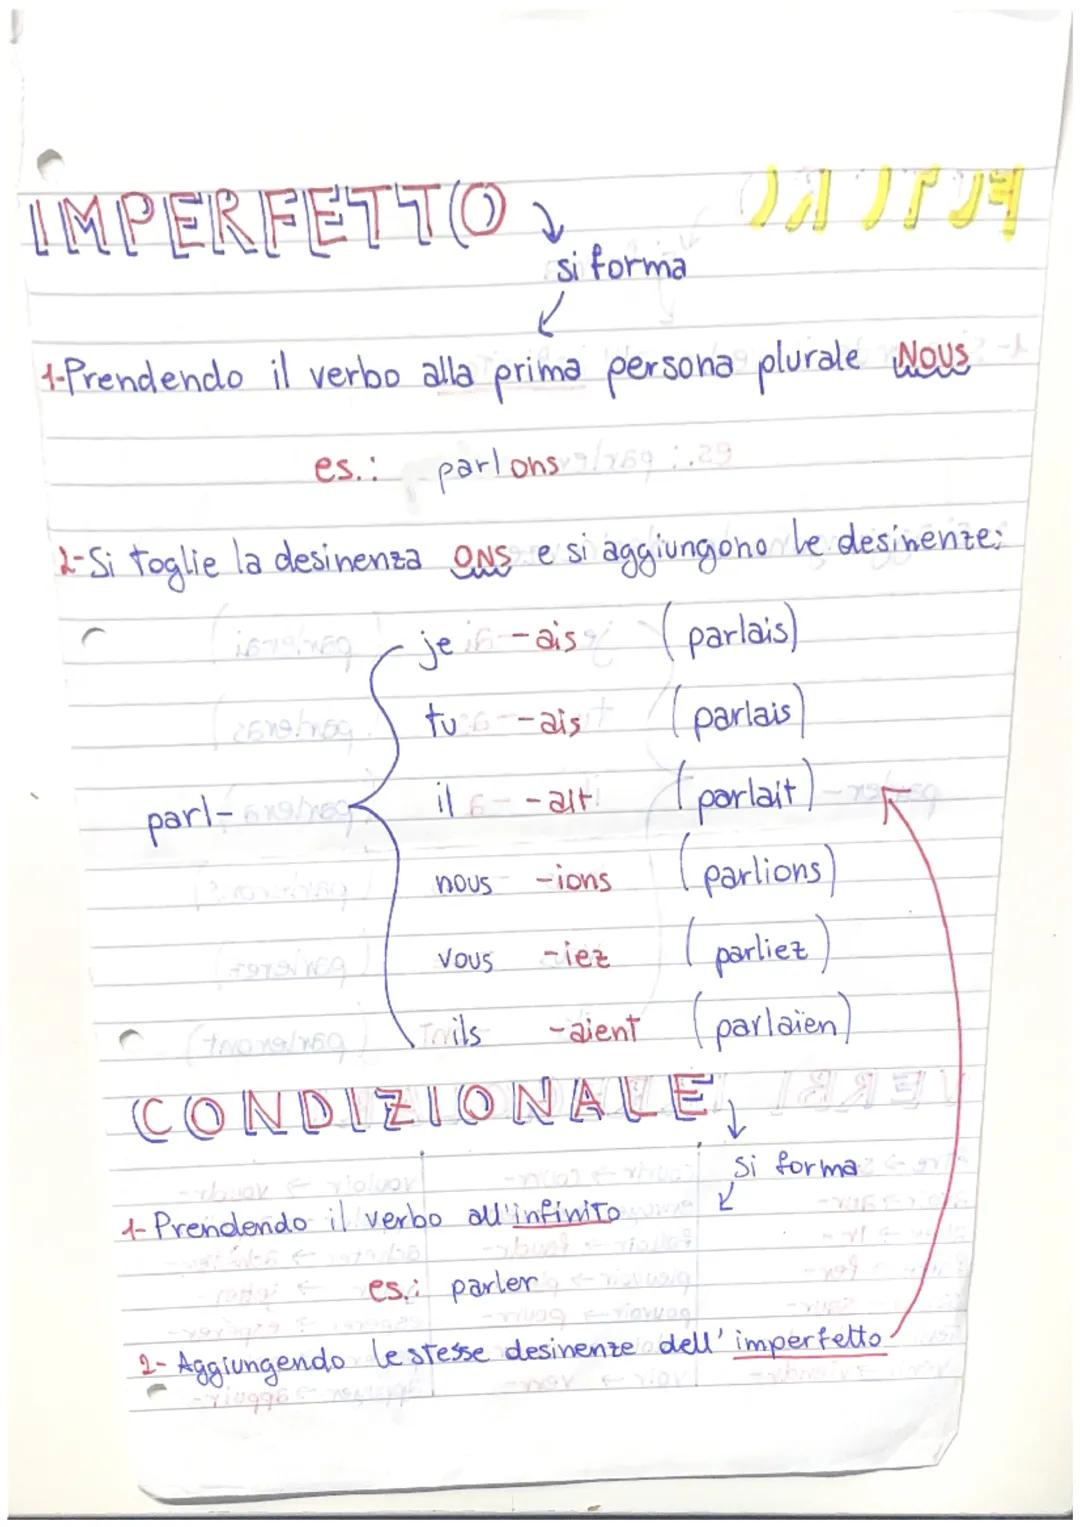 IMPERFETTO
si forma
1-Prendendo il verbo alla prima persona plurale NOUS
es.: parlons
2-Si toglie la desinenza ONS e si aggiungono le desinenze:
je -ais (parlais)
tu -ais (parlais)
parl- il -ait (parlait)
nous -ions (parlions)
vous -iez (parliez)
ils -aient (parlaien)
CONDIZIONALE
si forma
1-Prendendo il verbo all'infinito
es.: parler
2-Aggiungendo le stesse desinenze dell'imperfetto